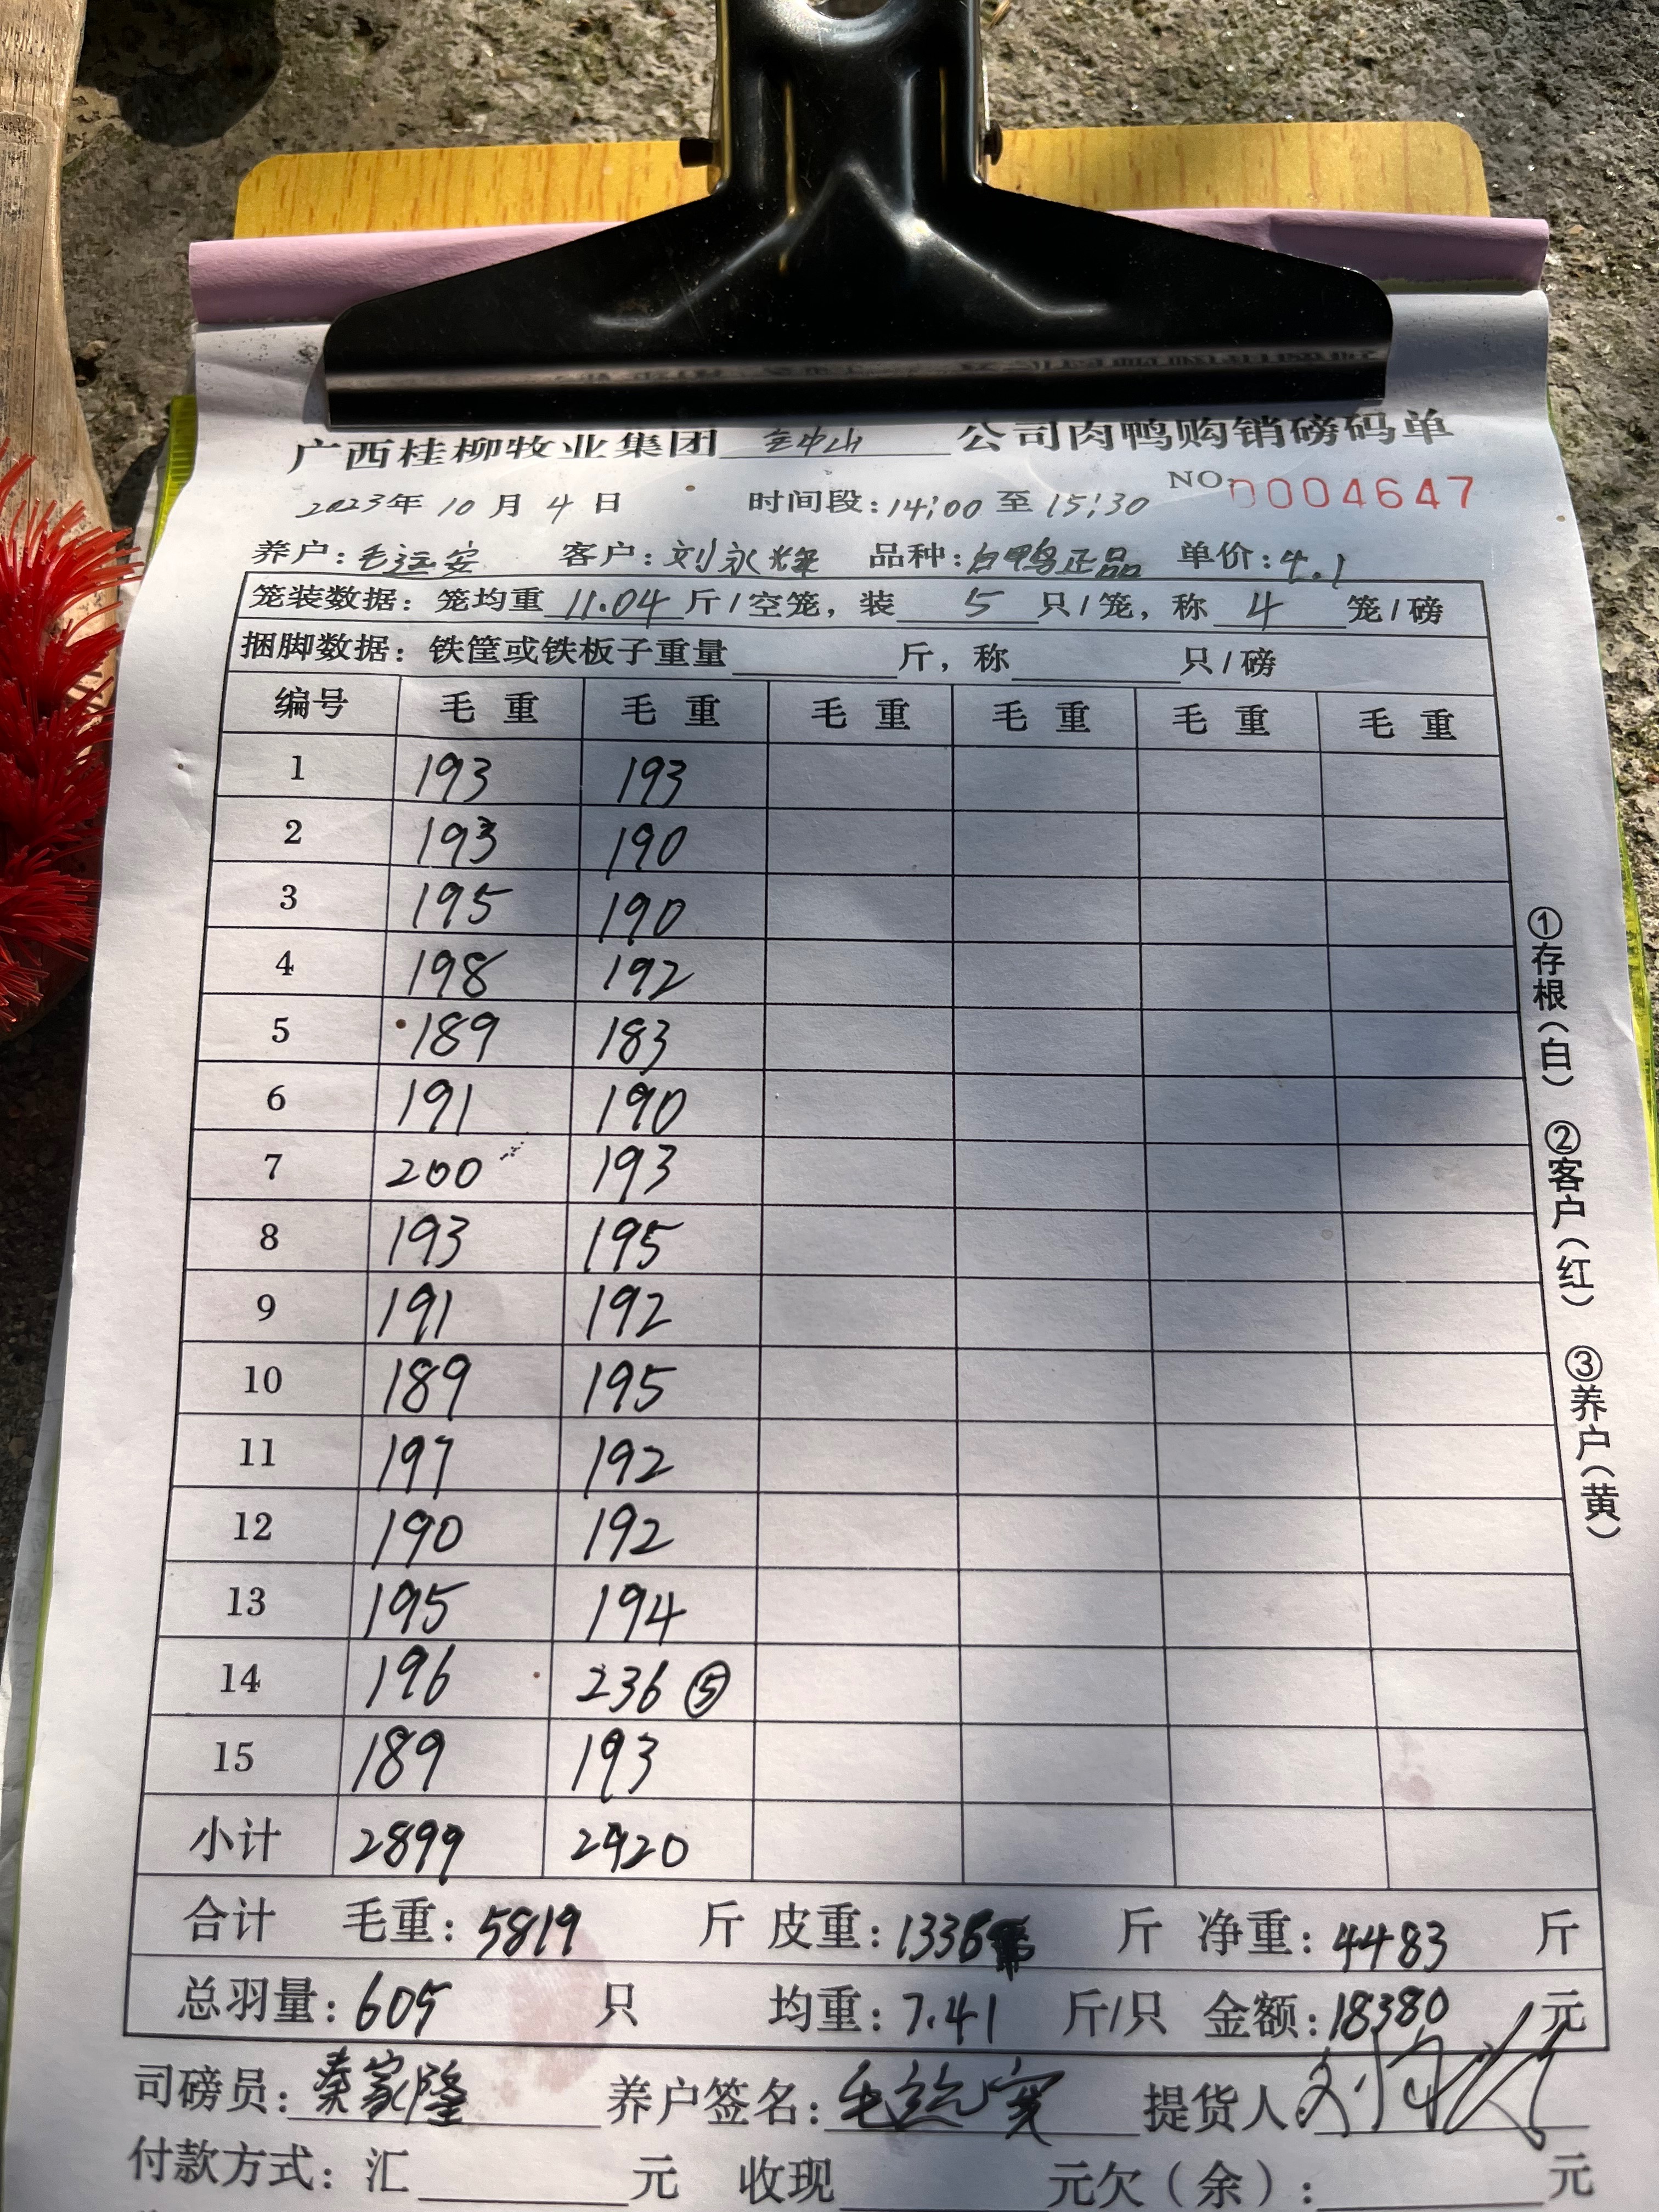 广西桂柳牧业集团 公司肉鸭购销磅码单
2023年 10 月 4 日 时间段:14:00 至 15:30 NO.0004647
养户:毛远安 客户:刘永辉 品种:白鸭正品 单价:4.1
笼装数据:笼均重 11.04 斤/空笼,装 5 只/笼,称 4 笼/磅
捆脚数据:铁筐或铁板子重量 斤,称 只/磅
编号 毛重 毛重 毛重 毛重 毛重 毛重
1 193 193
2 193 190
3 195 190
4 198 192
5 189 183
6 191 190
7 200 193
8 193 195
9 191 192
10 189 195
11 197 192
12 190 192
13 195 194
14 196 236 ⑤
15 189 193
小计 2899 2920
合计 毛重:5819 斤 皮重:1336 斤 净重:4483 斤
总羽量:605 只 均重:7.41 斤/只 金额:18380 元
司磅员:秦家隆 养户签名:毛远安 提货人
付款方式:汇 元 收现 元欠(余): 元
①存根(白) ②客户(红) ③养户(黄)